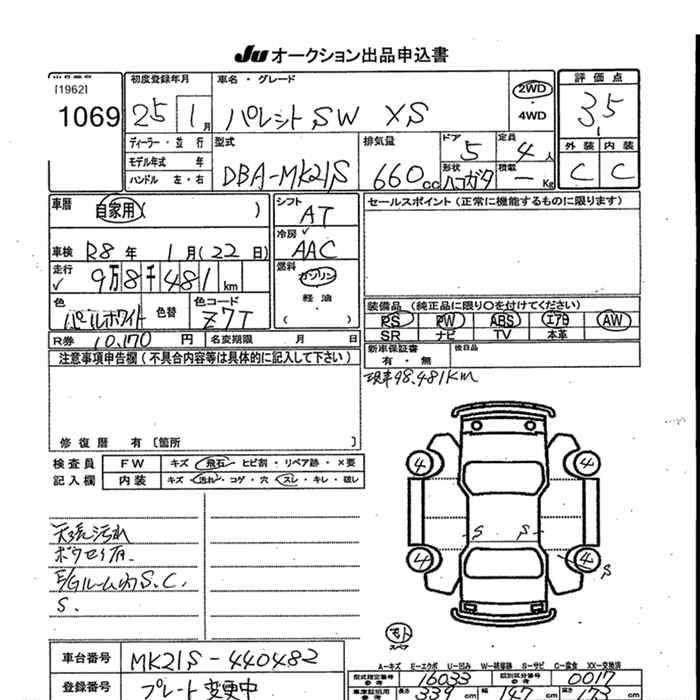 Ju オークション出品申込書
[1962]
1069
初度登録年月
25 1月
ディーラー・並行
モデル年式 年
ハンドル 左・右
車名・グレード
パレットSW XS
2WD
・
4WD
型式
DBA-MK21S
排気量
660cc
ドア
5
形状
ハコガタ
定員
4人
積載
- Kg
評価点
3.5
外装 内装
C C
車歴
自家用( )
車検 R8年 1月(22日)
走行
9万8千481km
色
パールホワイト
色替
色コード
Z7T
シフト
AT
冷房
AAC
燃料
ガソリン
軽油
( )
セールスポイント(正常に機能するものに限ります)
装備品(純正品に限り○を付けてください)
PS PW ABS エアB AW
SR ナビ TV 本革
新車保証書
有・無
後日品
R券 10,170円 名変期限 月 日
注意事項申告欄(不具合内容等は具体的に記入して下さい)
修復歴 有〔箇所 〕
現車98,481km
検査員
記入欄
FW キズ・飛石・ヒビ割・リペア跡・×要
内装 キズ・汚れ・コゲ・穴・スレ・キレ・破レ
天張汚れ
E/Gルーム内S.C.
S.
4 4
S S
4 4
S
スペア
車台番号 MK21S-440482
登録番号 プレート変更中
A-キズ E-エクボ U-凹み W-補修跡 S-サビ C-腐食 XX-交換済
型式指定番号 16033
類別区分番号 0017
長さ 339cm 幅 147cm